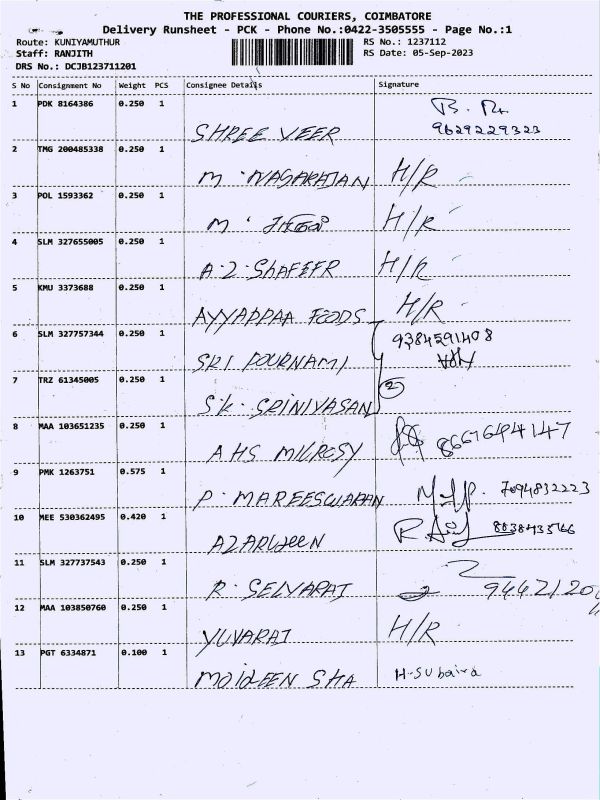 THE PROFESSIONAL COURIERS, COIMBATORE
Delivery Runsheet - PCK - Phone No.:0422-3505555 - Page No.:1
Route: KUNIYAMUTHUR RS No.: 1237112
Staff: RANJITH RS Date: 05-Sep-2023
DRS No.: DCJB123711201
S No Consignment No Weight PCS Consignee Details Signature
1 PDK 8164386 0.250 1
SHREE VEER 9629229323
2 TMG 200485338 0.250 1
M. NAGARAJAN H/R
3 POL 1593362 0.250 1
M. H/R
4 SLM 327655005 0.250 1
A.Z. SHAFEER H/R
5 KMU 3373688 0.250 1
AYYAPPAA FOODS H/R
6 SLM 327757344 0.250 1 9384591408
SRI POURNAMI
7 TRZ 61345005 0.250 1 2
S.K. SRINIVASAN
8 MAA 103651235 0.250 1
AHS 8661694147
9 PMK 1263751 0.575 1
P. MAREESWARAN 7094832223
10 MEE 530362495 0.420 1
11 SLM 327737543 0.250 1
R. SELVARAJ
12 MAA 103850760 0.250 1
YUVARAJ H/R
13 PGT 6334871 0.100 1
MOIDEEN SHA H-Subaira